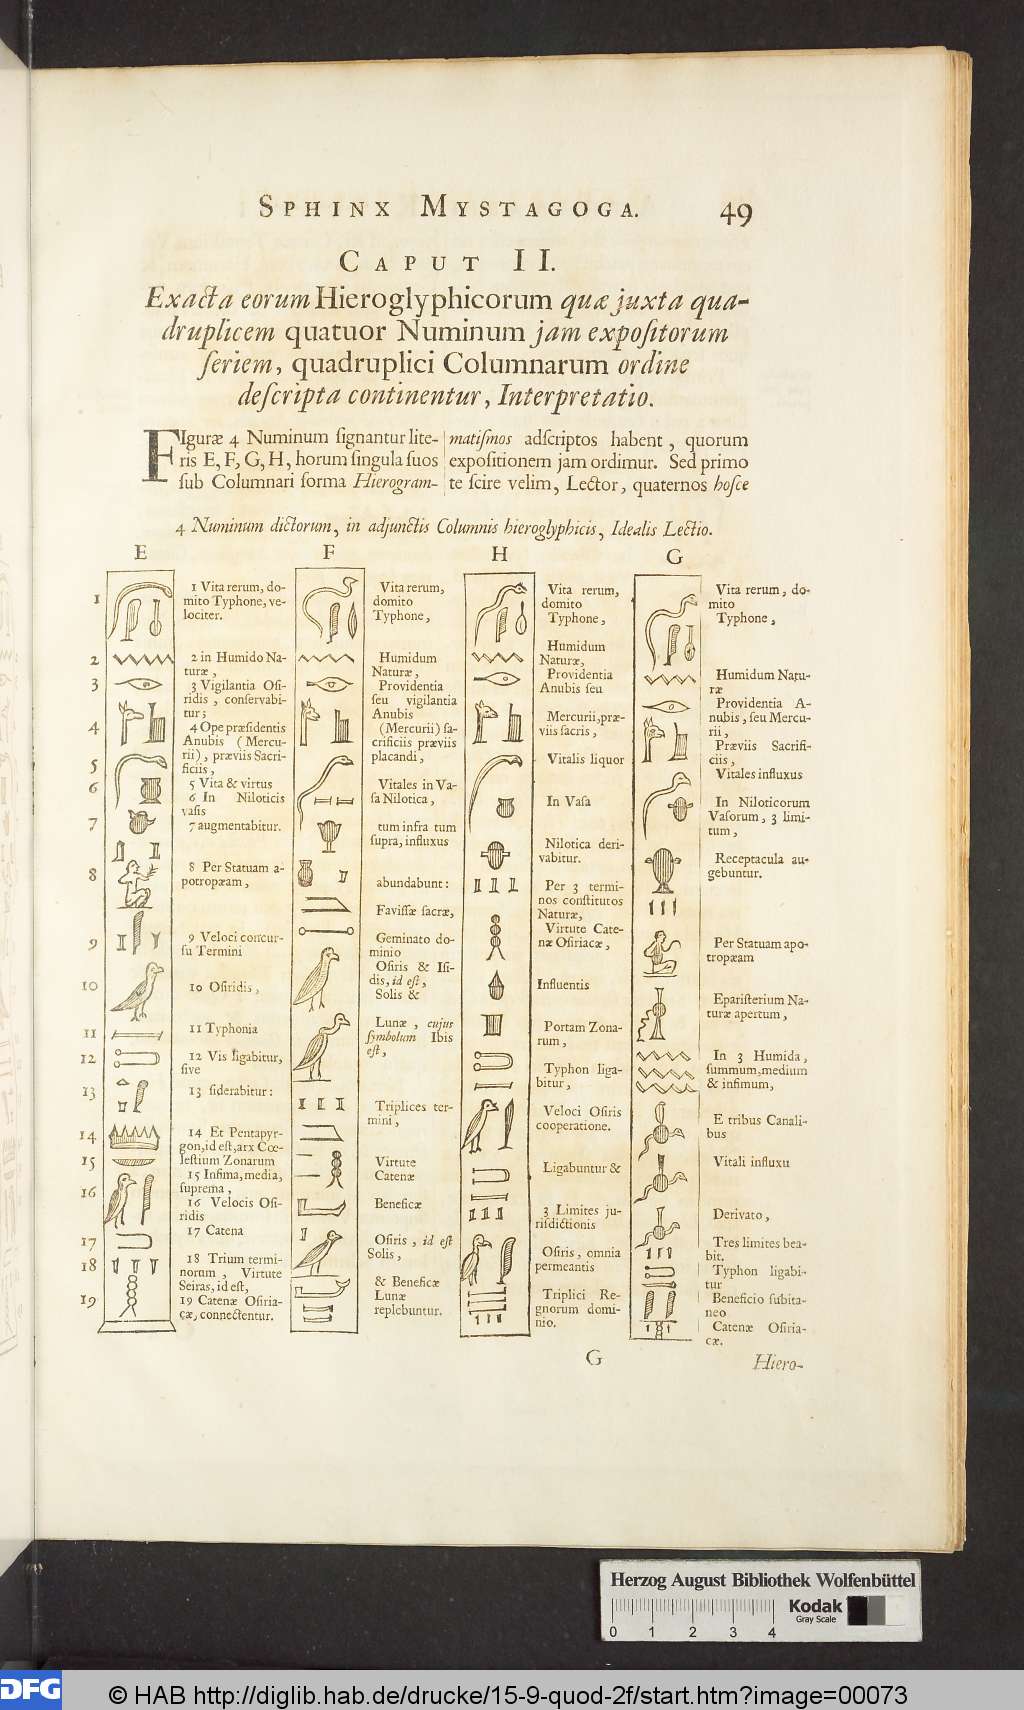 SPHINX MYSTAGOGA. 49
CAPUT II.
Exacta eorum Hieroglyphicorum quæ juxta qua-
druplicem quatuor Numinum jam expoſitorum
ſeriem, quadruplici Columnarum ordine
deſcripta continentur, Interpretatio.
FIguræ 4 Numinum ſignantur lite-
ris E, F, G, H, horum ſingula ſuos
ſub Columnari forma Hierogram-
matiſmos adſcriptos habent, quorum
expoſitionem jam ordimur. Sed primo
te ſcire velim, Lector, quaternos hoſce
4 Numinum dictorum, in adjunctis Columnis hieroglyphicis, Idealis Lectio.
E
1
2
3
4
5
6
7
8
9
10
11
12
13
14
15
16
17
18
19
1 Vita rerum, do-
mito Typhone, ve-
lociter.
2 in Humido Na-
turæ,
3 Vigilantia Oſi-
ridis, conſervabi-
tur;
4 Ope præſidentis
Anubis (Mercu-
rii), præviis Sacri-
ficiis,
5 Vita & virtus
6 In Niloticis
vaſis
7 augmentabitur.
8 Per Statuam a-
potropæam,
9 Veloci concur-
ſu Termini
10 Oſiridis,
11 Typhonia
12 Vis ligabitur,
ſive
13 ſiderabitur:
14 Et Pentapyr-
gon, id eſt, arx Cœ-
leſtium Zonarum
15 Infima, media,
ſuprema,
16 Velocis Oſi-
ridis
17 Catena
18 Trium termi-
norum, Virtute
Seiras, id eſt,
19 Catenæ Oſiria-
cæ, connectentur.
F
Vita rerum,
domito
Typhone,
Humidum
Naturæ,
Providentia
ſeu vigilantia
Anubis
(Mercurii) ſa-
crificiis præviis
placandi,
Vitales in Va-
ſa Nilotica,
tum infra tum
ſupra, influxus
abundabunt:
Faviſſæ ſacræ,
Geminato do-
minio
Oſiris & Iſi-
dis, id eſt,
Solis &
Lunæ, cujus
ſymbolum Ibis
eſt,
Triplices ter-
mini,
Virtute
Catenæ
Beneficæ
Oſiris, id eſt
Solis,
& Beneficæ
Lunæ
replebuntur.
H
Vita rerum,
domito
Typhone,
Humidum
Naturæ,
Providentia
Anubis ſeu
Mercurii, præ-
viis ſacris,
Vitalis liquor
In Vaſa
Nilotica deri-
vabitur.
Per 3 termi-
nos conſtitutos
Naturæ,
Virtute Cate-
næ Oſiriacæ,
Influentis
Portam Zona-
rum,
Typhon liga-
bitur,
Veloci Oſiris
cooperatione.
Ligabuntur &
3 Limites ju-
riſdictionis
Oſiris, omnia
permeantis
Triplici Re-
gnorum domi-
nio.
G
Vita rerum, do-
mito
Typhone,
Humidum Natu-
ræ
Providentia A-
nubis, ſeu Mercu-
rii,
Præviis Sacrifi-
ciis,
Vitales influxus
In Niloticorum
Vaſorum, 3 limi-
tum,
Receptacula au-
gebuntur.
Per Statuam apo-
tropæam
Epariſterium Na-
turæ apertum,
In 3 Humida,
ſummum, medium
& infimum,
E tribus Canali-
bus
Vitali influxu
Derivato,
Tres limites bea-
bit.
Typhon ligabi-
tur
Beneficio ſubita-
neo
Catenæ Oſiria-
cæ.
G
Hiero-
Herzog August Bibliothek Wolfenbüttel
Kodak
Gray Scale
0 1 2 3 4
DFG
© HAB http://diglib.hab.de/drucke/15-9-quod-2f/start.htm?image=00073